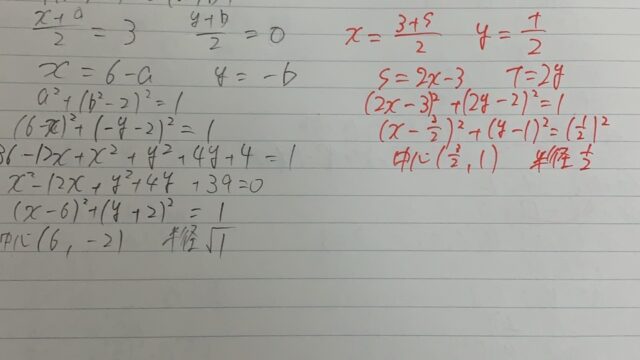 (x+a)/2 = 3   (y+b)/2 = 0
x = 6-a   y = -b
a²+(b²-2)²=1
(6-x)²+(-y-2)²=1
36-12x+x²+y²+4y+4=1
x²-12x+y²+4y+39=0
(x-6)²+(y+2)²=1
中心(6, -2)   半径√1
x = (3+s)/2   y = T/2
s=2x-3   T=2y
(2x-3)²+(2y-2)²=1
(x-3/2)²+(y-1)²=(1/2)²
中心(3/2, 1)   半径 1/2